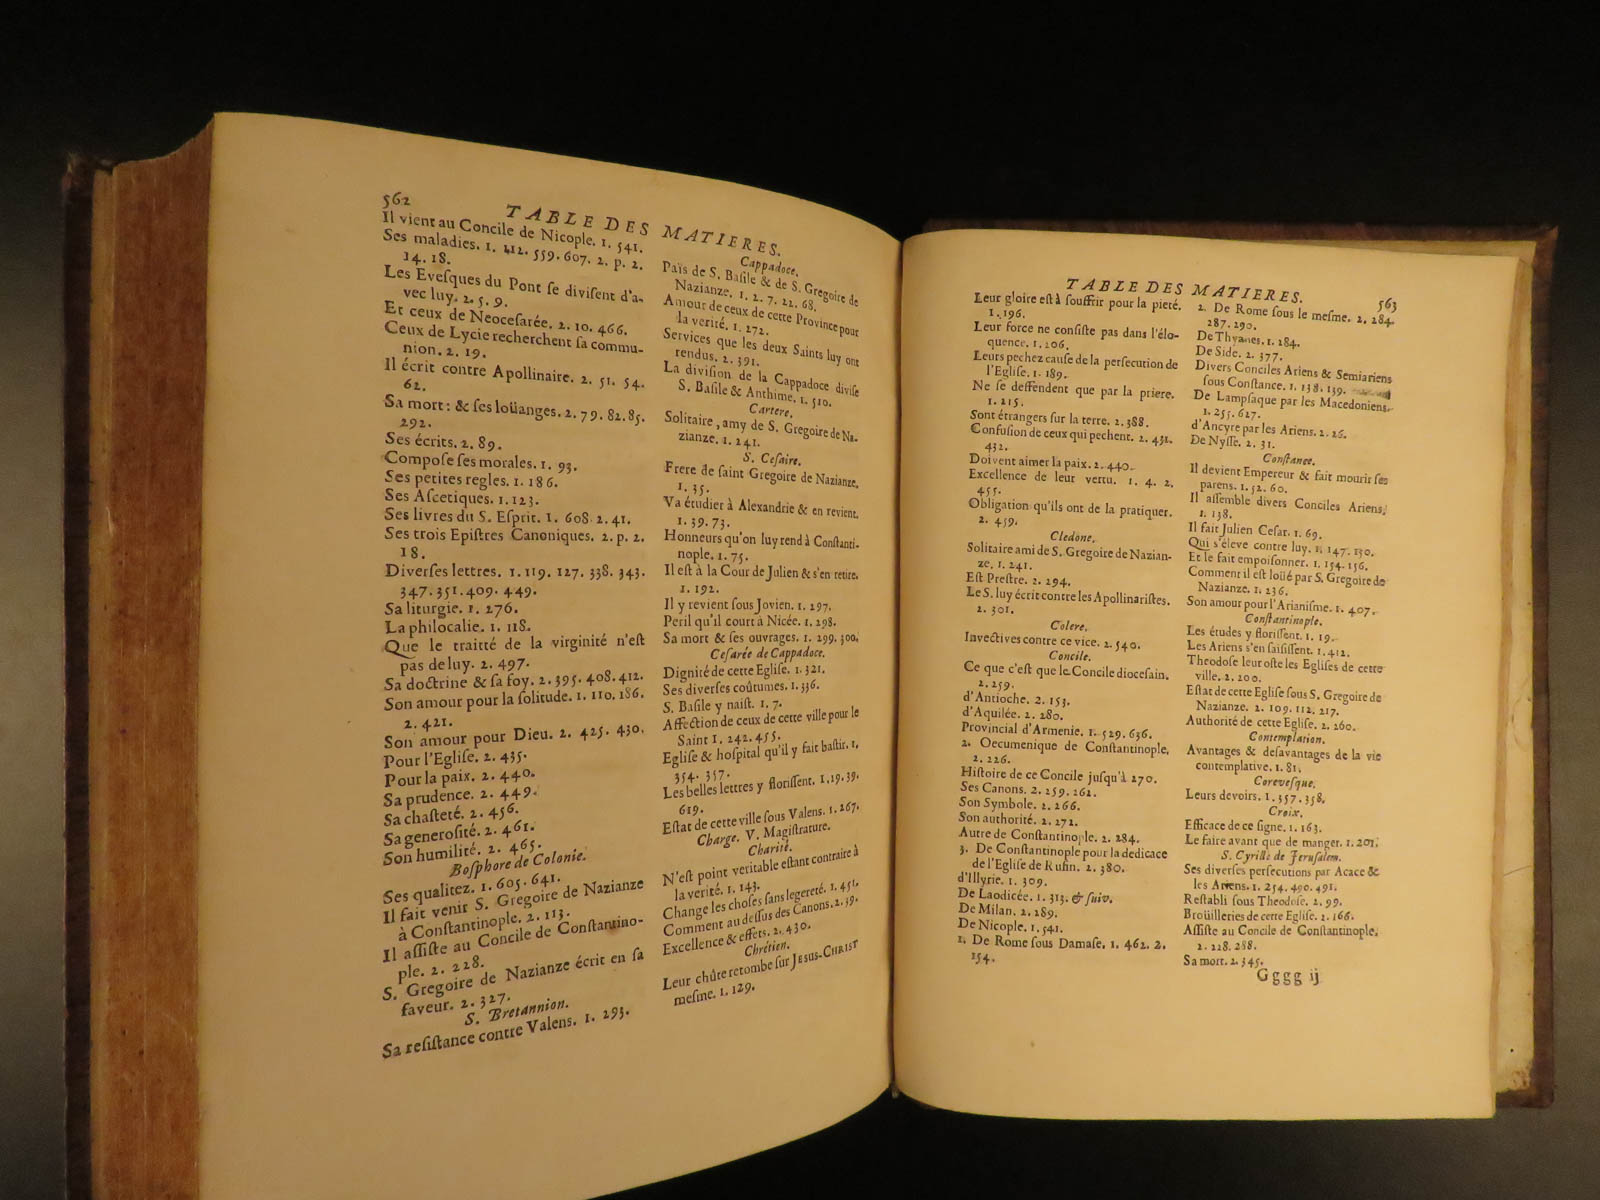 562
TABLE DES MATIERES.
Il vient au Concile de Nicople. 1. 541.
Ses maladies. 1. 412. 559. 607. 2. p. 2.
14. 18.
Les Evesques du Pont se divisent d'a-
vec luy. 2. 5. 9.
Et ceux de Neocesarée. 2. 10. 466.
Ceux de Lycie recherchent sa commu-
nion. 2. 19.
Il écrit contre Apollinaire. 2. 51. 54.
62.
Sa mort: & ses loüanges. 2. 79. 82. 85.
292.
Ses écrits. 2. 89.
Compose ses morales. 1. 93.
Ses petites regles. 1. 186.
Ses Ascetiques. 1. 123.
Ses livres du S. Esprit. 1. 608. 2. 41.
Ses trois Epistres Canoniques. 2. p. 2.
18.
Diverses lettres. 1. 119. 127. 338. 343.
347. 351. 409. 449.
Sa liturgie. 1. 276.
La philocalie. 1. 118.
Que le traitté de la virginité n'est
pas de luy. 2. 497.
Sa doctrine & sa foy. 2. 395. 408. 412.
Son amour pour la solitude. 1. 110. 186.
2. 421.
Son amour pour Dieu. 2. 425. 430.
Pour l'Eglise. 2. 435.
Pour la paix. 2. 440.
Sa prudence. 2. 449.
Sa chasteté. 2. 456.
Sa generosité. 2. 461.
Son humilité. 2. 465.
Bosphore de Colonie.
Ses qualitez. 1. 605. 641.
Il fait venir S. Gregoire de Nazianze
à Constantinople. 2. 113.
Il assiste au Concile de Constantino-
ple. 2. 228.
S. Gregoire de Nazianze écrit en sa
faveur. 2. 327.
S. Bretannion.
Sa resistance contre Valens. 1. 293.
Cappadoce.
Païs de S. Basile & de S. Gregoire de
Nazianze. 1. 2. 7. 22. 68.
Amour de ceux de cette Province pour
la verité. 1. 272.
Services que les deux Saints luy ont
rendus. 2. 391.
La division de la Cappadoce divise
S. Basile & Anthime. 1. 510.
Cartere.
Solitaire, amy de S. Gregoire de Na-
zianze. 1. 241.
S. Cesaire.
Frere de saint Gregoire de Nazianze.
1. 35.
Va étudier à Alexandrie & en revient.
1. 39. 73.
Honneurs qu'on luy rend à Constanti-
nople. 1. 75.
Il est à la Cour de Julien & s'en retire.
1. 192.
Il y revient sous Jovien. 1. 297.
Peril qu'il court à Nicée. 1. 298.
Sa mort & ses ouvrages. 1. 299. 300.
Cesarée de Cappadoce.
Dignité de cette Eglise. 1. 321.
Ses diverses coûtumes. 1. 336.
S. Basile y naist. 1. 7.
Affection de ceux de cette ville pour le
Saint 1. 242. 455.
Eglise & hospital qu'il y fait bastir. 1.
354. 357.
Les belles lettres y florissent. 1. 19. 39.
619.
Estat de cette ville sous Valens. 1. 267.
Charge. V. Magistrature.
Charité.
N'est point veritable estant contraire à
la verité. 1. 143.
Change les choses sans legereté. 1. 451.
Comment au dessus des Canons. 2. 39.
Excellence & effets. 2. 430.
Chrétien.
Leur chûte retombe sur JESUS-CHRIST
mesme. 1. 129.
TABLE DES MATIERES.
563
Leur gloire est à souffrir pour la pieté.
1. 196.
Leur force ne consiste pas dans l'élo-
quence. 1. 206.
Leurs pechez cause de la persecution de
l'Eglise. 1. 189.
Ne se deffendent que par la priere.
1. 215.
Sont étrangers sur la terre. 2. 388.
Confusion de ceux qui pechent. 2. 431.
432.
Doivent aimer la paix. 2. 440.
Excellence de leur vertu. 1. 4. 2.
455.
Obligation qu'ils ont de la pratiquer.
2. 459.
Cledone.
Solitaire ami de S. Gregoire de Nazian-
ze. 1. 241.
Est Prestre. 2. 294.
Le S. luy écrit contre les Apollinaristes.
2. 301.
Colere.
Invectives contre ce vice. 2. 540.
Concile.
Ce que c'est que le Concile diocesain.
2. 259.
d'Antioche. 2. 153.
d'Aquilée. 2. 280.
Provincial d'Armenie. 1. 529. 636.
2. Oecumenique de Constantinople.
2. 226.
Histoire de ce Concile jusqu'à 270.
Ses Canons. 2. 259. 261.
Son Symbole. 2. 266.
Son authorité. 2. 272.
Autre de Constantinople. 2. 284.
3. De Constantinople pour la dedicace
de l'Eglise de Rufin. 2. 380.
d'Illyrie. 1. 309.
De Laodicée. 1. 313. & suiv.
De Milan. 2. 289.
De Nicople. 1. 541.
1. De Rome sous Damase. 1. 462. 2.
154.
2. De Rome sous le mesme. 2. 284.
287. 290.
De Thyanes. 1. 284.
De Side. 2. 377.
Divers Conciles Ariens & Semiariens
sous Constance. 1. 138. 139.
De Lampsaque par les Macedoniens.
1. 255. 627.
d'Ancyre par les Ariens. 2. 26.
De Nysse. 2. 31.
Constance.
Il devient Empereur & fait mourir ses
parens. 1. 52. 60.
Il assemble divers Conciles Ariens.
1. 138.
Il fait Julien Cesar. 1. 69.
Qui s'éleve contre luy. 1. 147. 150.
Et le fait empoisonner. 1. 154. 156.
Comment il est loüé par S. Gregoire de
Nazianze. 1. 236.
Son amour pour l'Arianisme. 1. 407.
Constantinople.
Les études y florissent. 1. 19.
Les Ariens s'en saisissent. 1. 412.
Theodose leur oste les Eglises de cette
ville. 2. 200.
Estat de cette Eglise sous S. Gregoire de
Nazianze. 2. 109. 112. 217.
Authorité de cette Eglise. 2. 260.
Contemplation.
Avantages & desavantages de la vie
contemplative. 1. 81.
Corevesque.
Leurs devoirs. 1. 357. 358.
Croix.
Efficace de ce signe. 1. 163.
Le faire avant que de manger. 1. 201.
S. Cyrille de Jerusalem.
Ses diverses persecutions par Acace &
les Ariens. 1. 254. 490. 491.
Restabli sous Theodose. 2. 99.
Broüilleries de cette Eglise. 2. 166.
Assiste au Concile de Constantinople.
2. 228. 288.
Sa mort. 2. 345.
Gggg ij